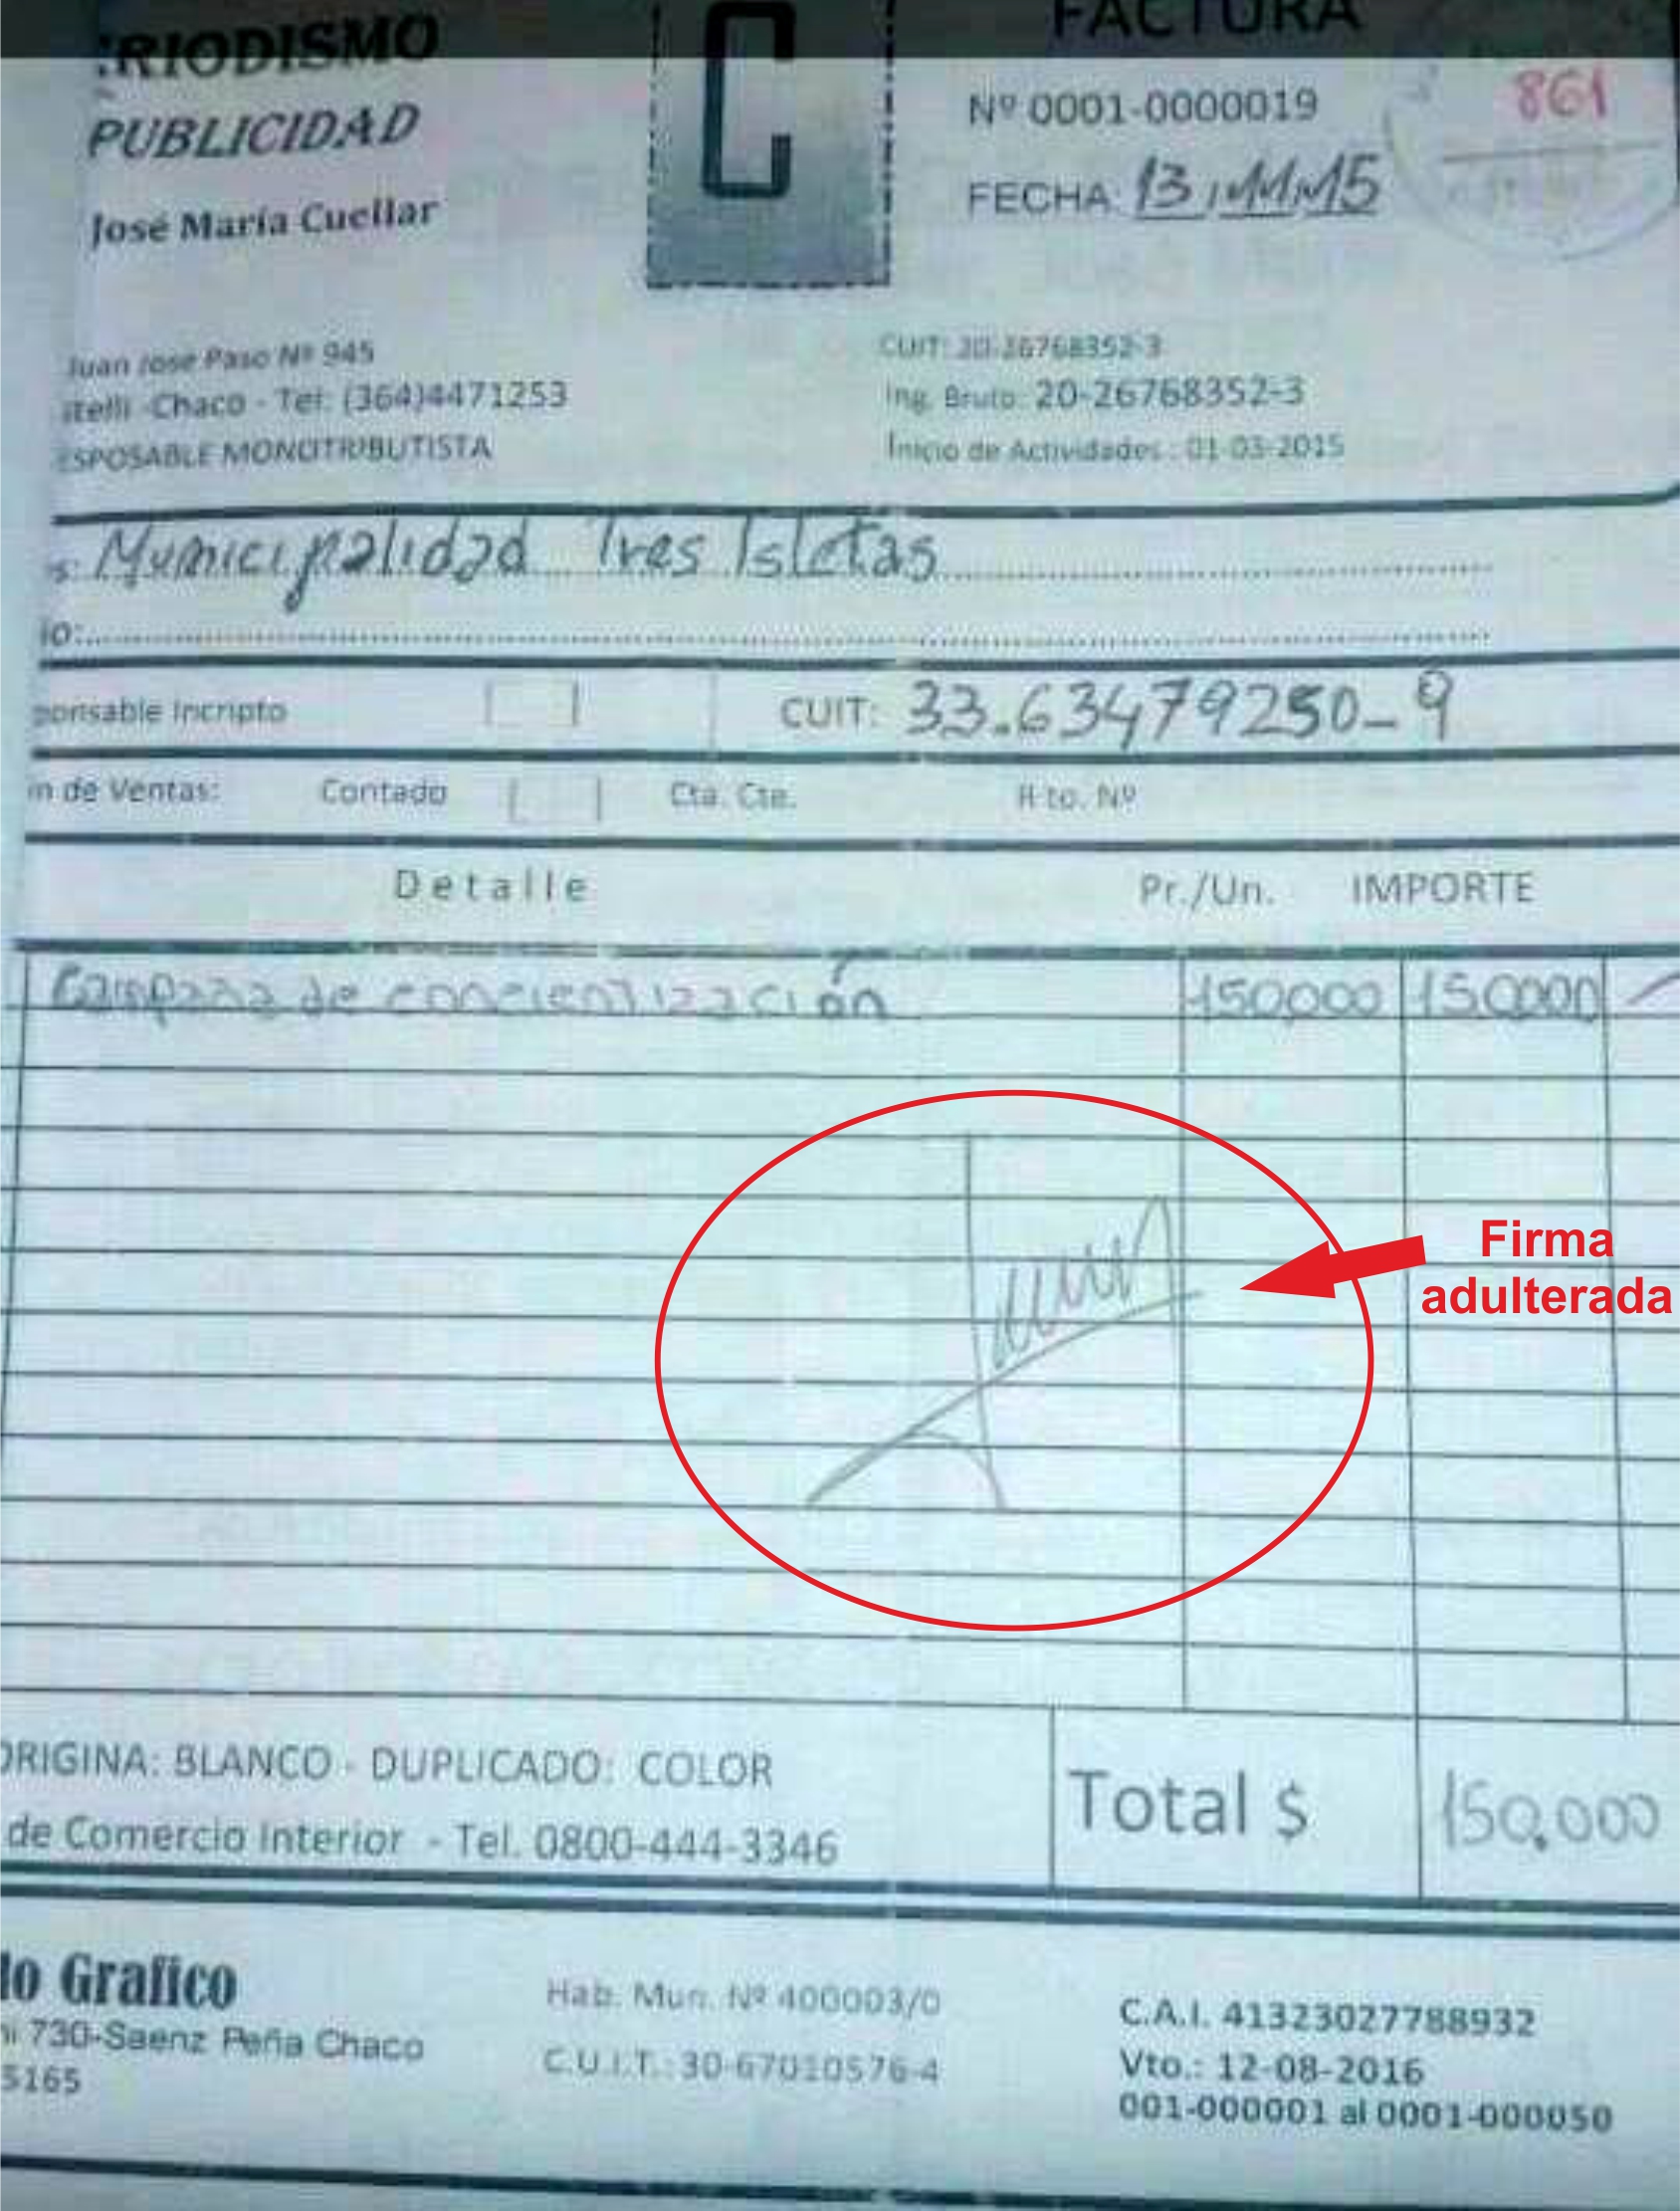 :RIODISMO
PUBLICIDAD
José María Cuellar
C
FACTURA
Nº 0001-0000019
FECHA: 13/11/15
861
Juan Jose Paso Nº 945
itelli -Chaco - Tel: (364)4471253
ESPOSABLE MONOTRIBUTISTA
CUIT: 20-26768352-3
Ing. Bruto: 20-26768352-3
Inicio de Actividades : 01-03-2015
s: Municipalidad Tres Isletas
io:
ponsable Incripto CUIT: 33.63479250-9
n de Ventas: Contado Cta. Cte. R-to. Nº
Detalle Pr./Un. IMPORTE
Campaña de concientización 150,000 150,000
Firma
adulterada
ORIGINA: BLANCO - DUPLICADO: COLOR
de Comercio Interior - Tel. 0800-444-3346
Total $ 150.000
lo Grafico
ni 730-Saenz Peña Chaco
5165
Hab. Mun. Nº 400003/0
C.U.I.T.: 30-67010576-4
C.A.I. 41323027788932
Vto.: 12-08-2016
001-000001 al 0001-000050